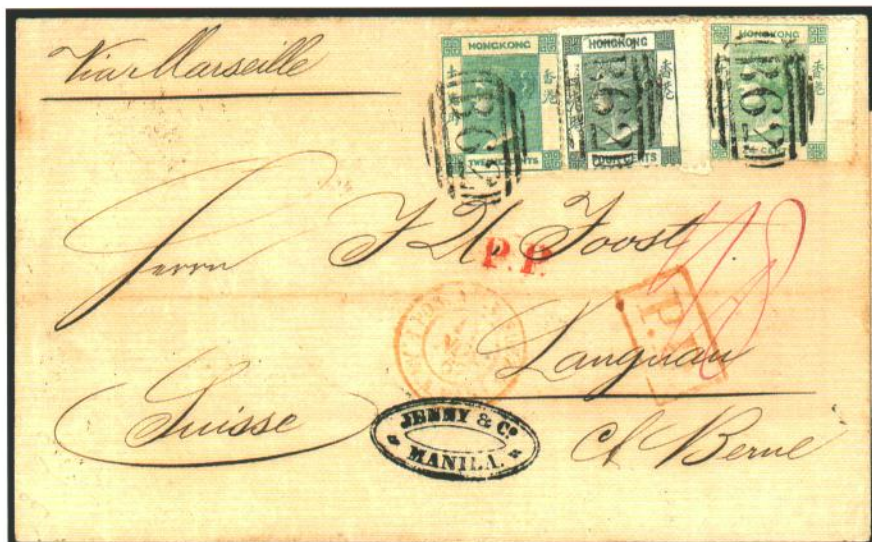 Via Marseille
HONGKONG
香港
CENTS
B62
HONGKONG
香港
FOUR CENTS
B62
HONGKONG
香港
B62
Herrn J. U. Joost
P.P.
P.D.
Langnau
Suisse
JENNY & Co
MANILA.
Ct Berne